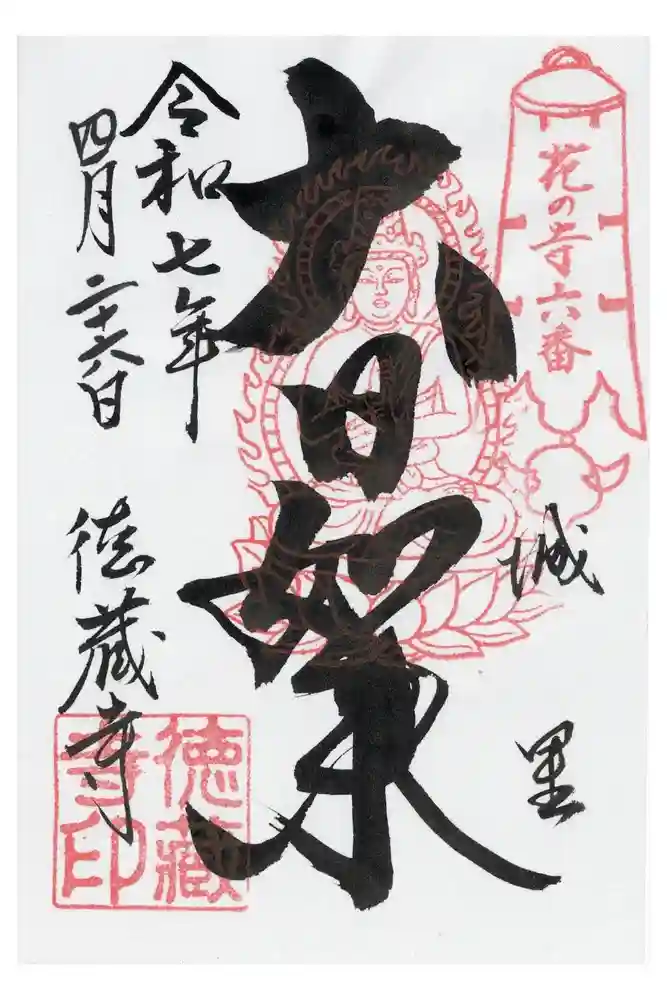 花の寺六番
城
里
大日如来
令和七年
四月二十六日
徳蔵寺
徳蔵
寺印